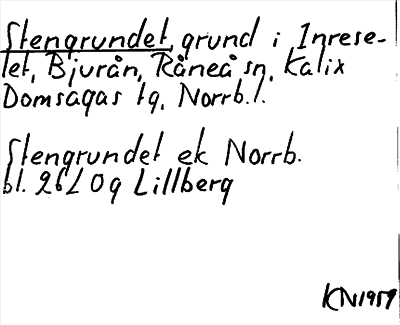 Stengrundet, grund i Inrese-
let, Bjurån, Råneå sn, Kalix
Domsagas tg, Norrb.l.
Stengrundet ek Norrb.
bl. 26L0g Lillberg
KN1959